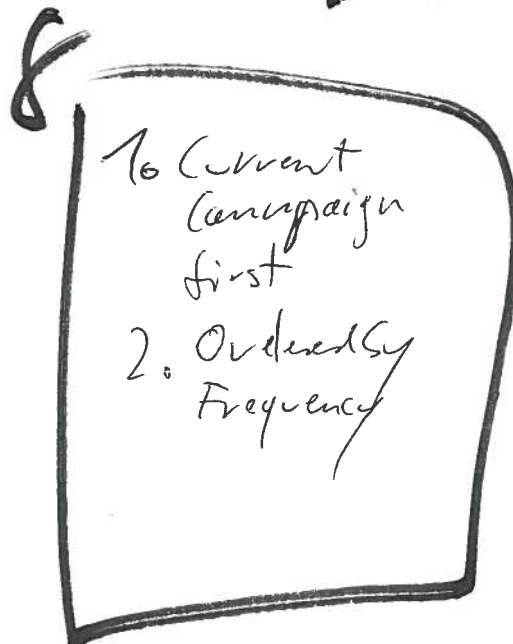 8
1. Current
Campaign
first
2. Ordered by
Frequency